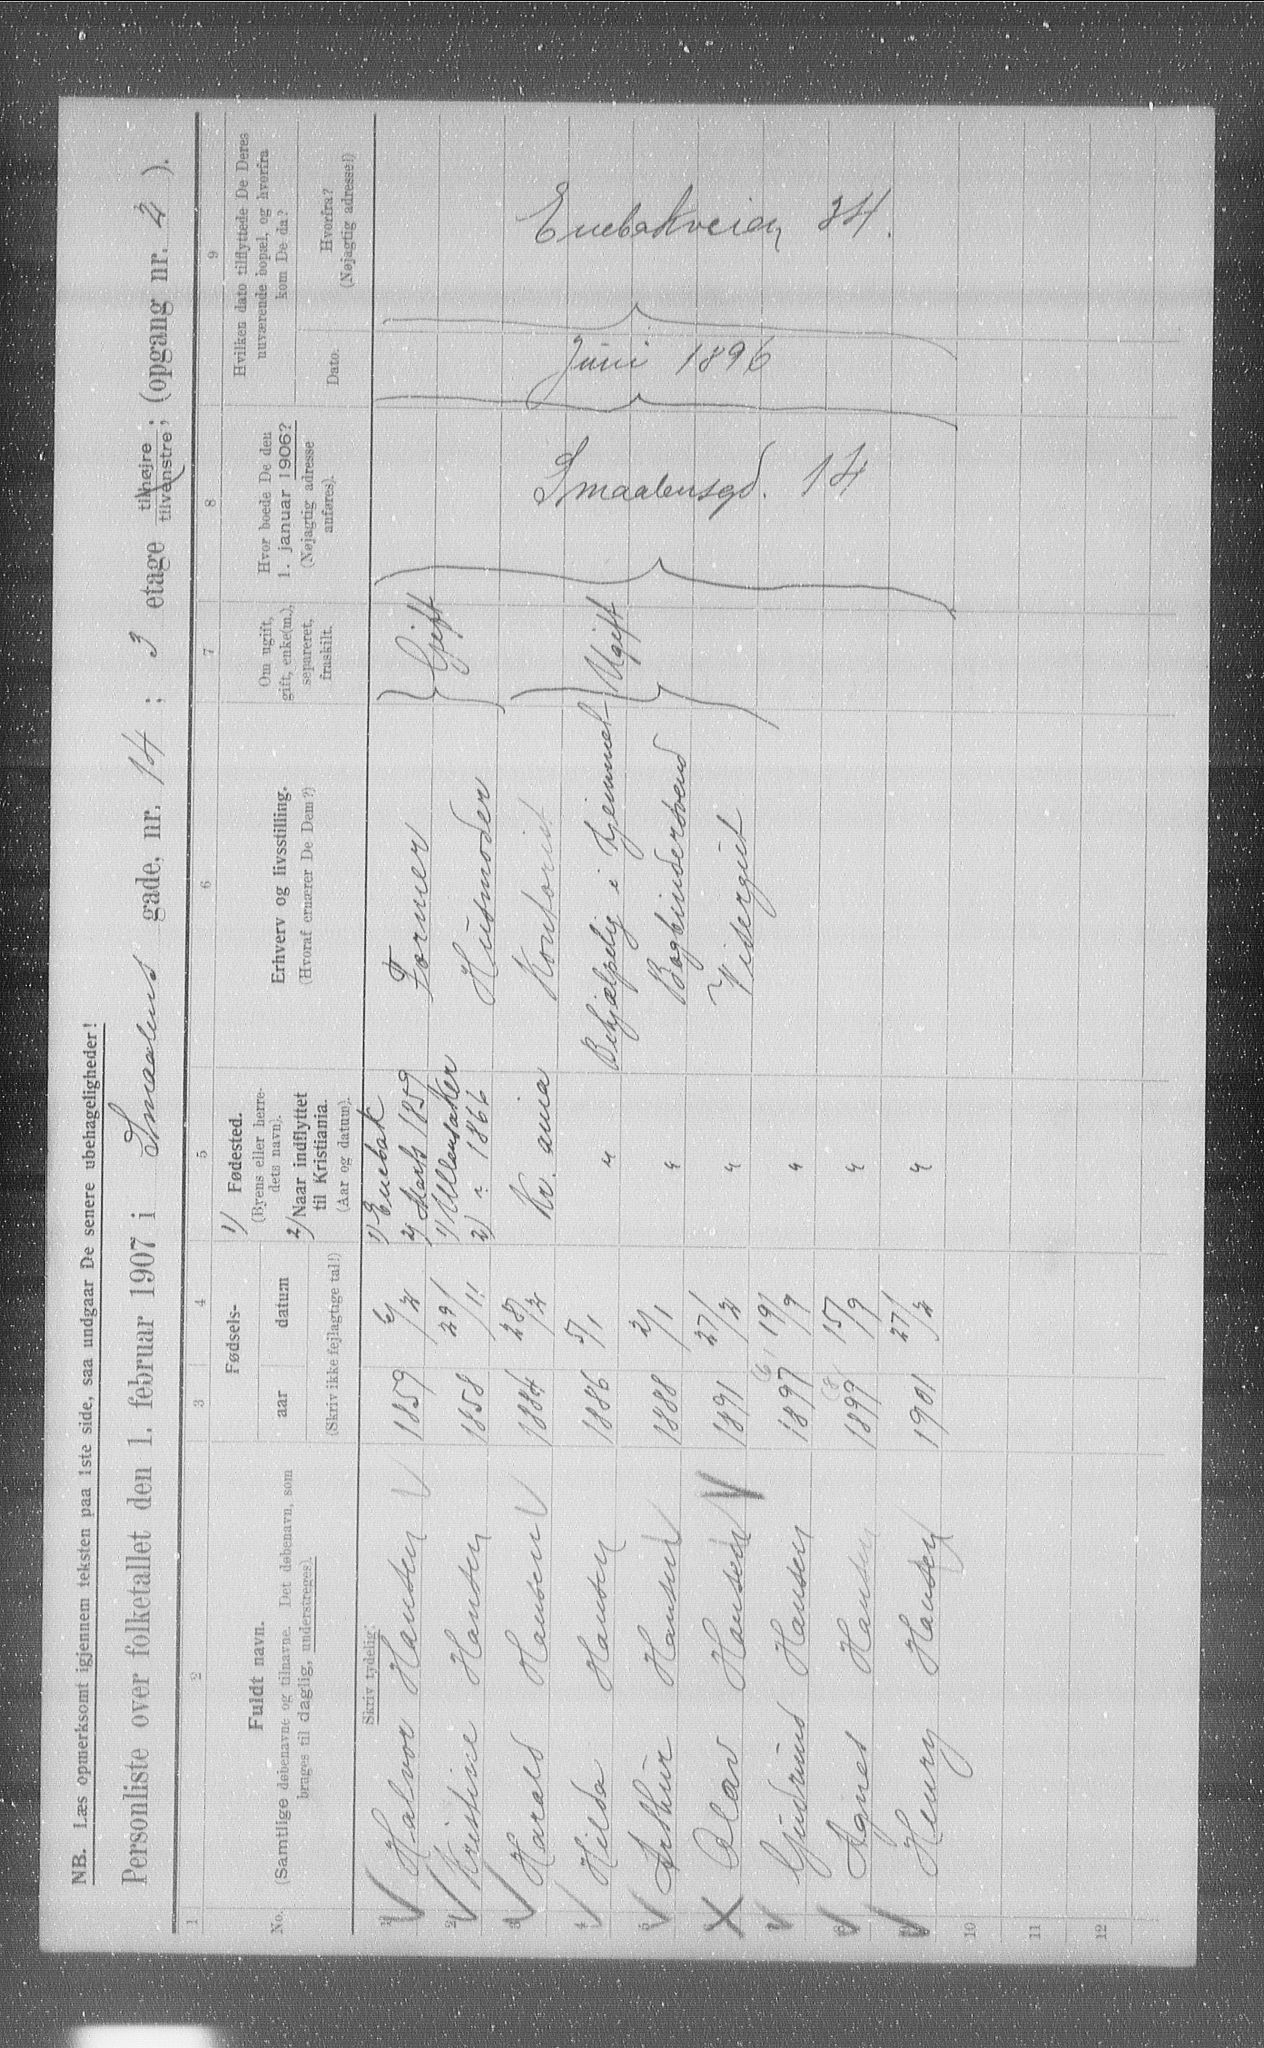 NB. Læs opmerksomt igjennem teksten paa 1ste side, saa undgaar De senere ubehageligheder!
Personliste over folketallet den 1. februar 1907 i Smaalens gade, nr. 14; 3 etage tilhøjre / tilvenstre; (opgang nr. 2).
1 2 3 4 5 6 7 8 9
No.
Fuldt navn.
(Samtlige døbenavne og tilnavne. Det døbenavn, som
bruges til daglig, understreges).
Skriv tydelig:
Fødsels-
aar datum
(Skriv ikke fejlagtige tal!)
1) Fødested.
(Byens eller herre-
dets navn).
2) Naar indflyttet
til Kristiania.
(Aar og datum).
Erhverv og livsstilling.
(Hvoraf ernærer De Dem?)
Om ugift,
gift, enke(m.),
separeret,
fraskilt.
Hvor boede De den
1. januar 1906?
(Nøjagtig adresse
anføres).
Hvilken dato tilflyttede De Deres
nuværende bopæl, og hvorfra
kom De da?
Dato.
Hvorfra?
(Nøjagtig adresse!)
1 Halvor Hansen 1859 6/2 1) Enebak 2) Marts 1859 Former
2 Kristine Hansen 1858 /11 1) Ullensaker 2) " 1866 Husmoder
Gift
3 Harald Hansen 1884 28/2 Kr.ania Kontorist
4 Hilda Hansen 1886 5/1 " Behjælpelig i Hjemmet
5 Arthur Hansen 1888 2/1 " Bogbindersvend
6 Olav Hansen 1891 27/2 " Visergut
Ugift
7 Gudrund Hansen 1897 (6) 19/9 "
8 Agnes Hansen 1899 (8) 15/9 "
9 Henry Hansen 1901 27/2 "
Smaalensgd. 14
Juni 1896
Enebakveien 34.
10
11
12